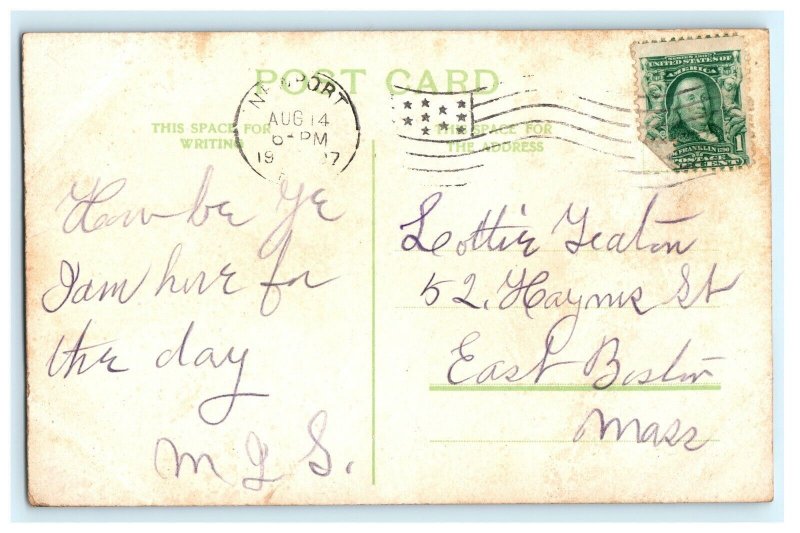 POST CARD
THIS SPACE FOR
WRITING
THIS SPACE FOR
THE ADDRESS
NEWPORT
AUG 14
6-PM
1907
SERIES 1902
UNITED STATES OF
AMERICA
FRANKLIN 1790
POSTAGE
1 CENT
How be Ye
I am here for
the day
M L S.
Lottie Yeaton
52, Haynes St
East Boston
Mass